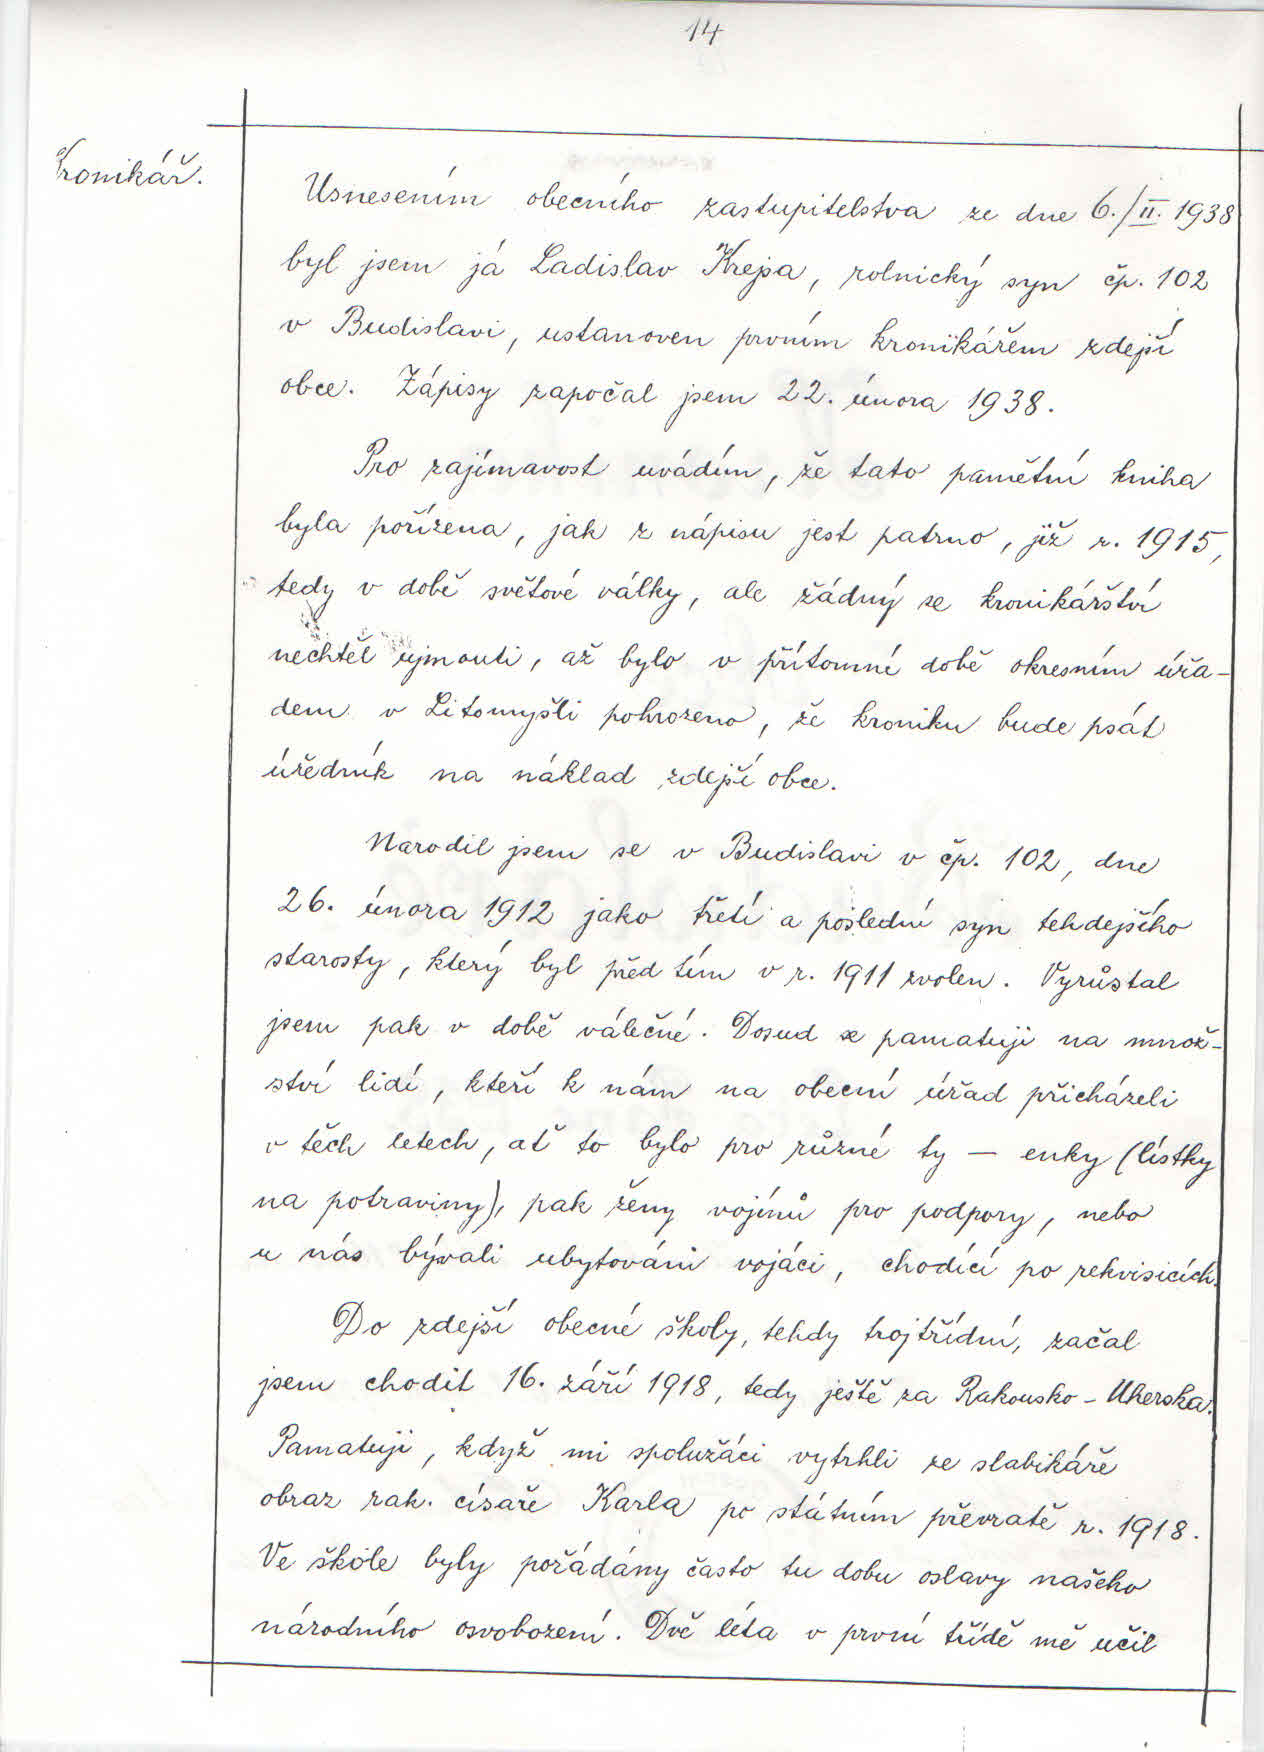 14
Kronikář.
Usnesením obecního zastupitelstva ze dne 6./II. 1938
byl jsem já Ladislav Krejsa, rolnický syn čp. 102
v Budislavi, ustanoven prvním kronikářem zdejší
obce. Zápisy započal jsem 22. února 1938.
Pro zajímavost uvádím, že tato pamětní kniha
byla pořízena, jak z nápisu jest patrno, již r. 1915,
tedy v době světové války, ale žádný se kronikářství
nechtěl ujmouti, až bylo v přítomné době okresním úřa-
dem v Litomyšli pohrozeno, že kroniku bude psát
úředník na náklad zdejší obce.
Narodil jsem se v Budislavi v čp. 102, dne
26. února 1912 jako třetí a poslední syn tehdejšího
starosty, který byl před tím v r. 1911 zvolen. Vyrůstal
jsem pak v době válečné. Dosud se pamatuji na množ-
ství lidí, kteří k nám na obecní úřad přicházeli
v těch letech, ať to bylo pro různé ty — enky (lístky
na potraviny), pak ženy vojínů pro podpory, nebo
u nás bývali ubytováni vojáci, chodící po rekvisicích.
Do zdejší obecné školy, tehdy trojtřídní, začal
jsem chodit 16. září 1918, tedy ještě za Rakousko-Uherska.
Pamatuji, když mi spolužáci vytrhli ze slabikáře
obraz rak. císaře Karla po státním převratě r. 1918.
Ve škole byly pořádány často tu dobu oslavy našeho
národního osvobození. Dvě léta v první třídě mě učil